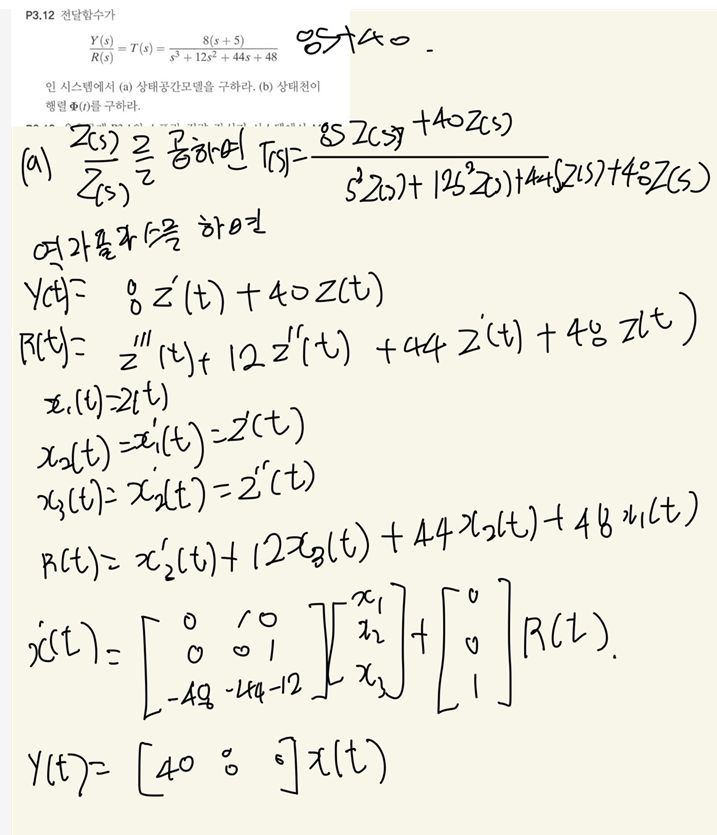 P3.12 전달함수가
Y(s)/R(s) = T(s) = 8(s + 5)/(s³ + 12s² + 44s + 48)
8s+40.
인 시스템에서 (a) 상태공간모델을 구하라. (b) 상태천이
행렬 Φ(t)를 구하라.
(a) Z(s)/Z(s) 를 곱하면 T(s)= (8SZ(s) +40Z(s))/(s³Z(s)+12s²Z(s)+44SZ(s)+48Z(s))
역라플라스를 하면
Y(t)= 8z'(t)+40z(t)
R(t)= z'''(t)+12z''(t) +44z'(t)+48z(t)
x₁(t)=z(t)
x₂(t)=x₁'(t)=z'(t)
x₃(t)=x₂'(t)=z''(t)
R(t)=x₂'(t)+12x₃(t)+44x₂(t)+48x₁(t)
ẋ(t)= [0 1 0; 0 0 1; -48 -44 -12][x₁; x₂; x₃]+[0; 0; 1]R(t).
Y(t)= [40 8 0]x(t)